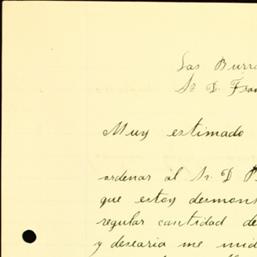 Las Burra
Sr. D. Fran
Muy estimado
ordenar al Sr. D P
que estoy desmon
regular cantidad de
y desearia me mud